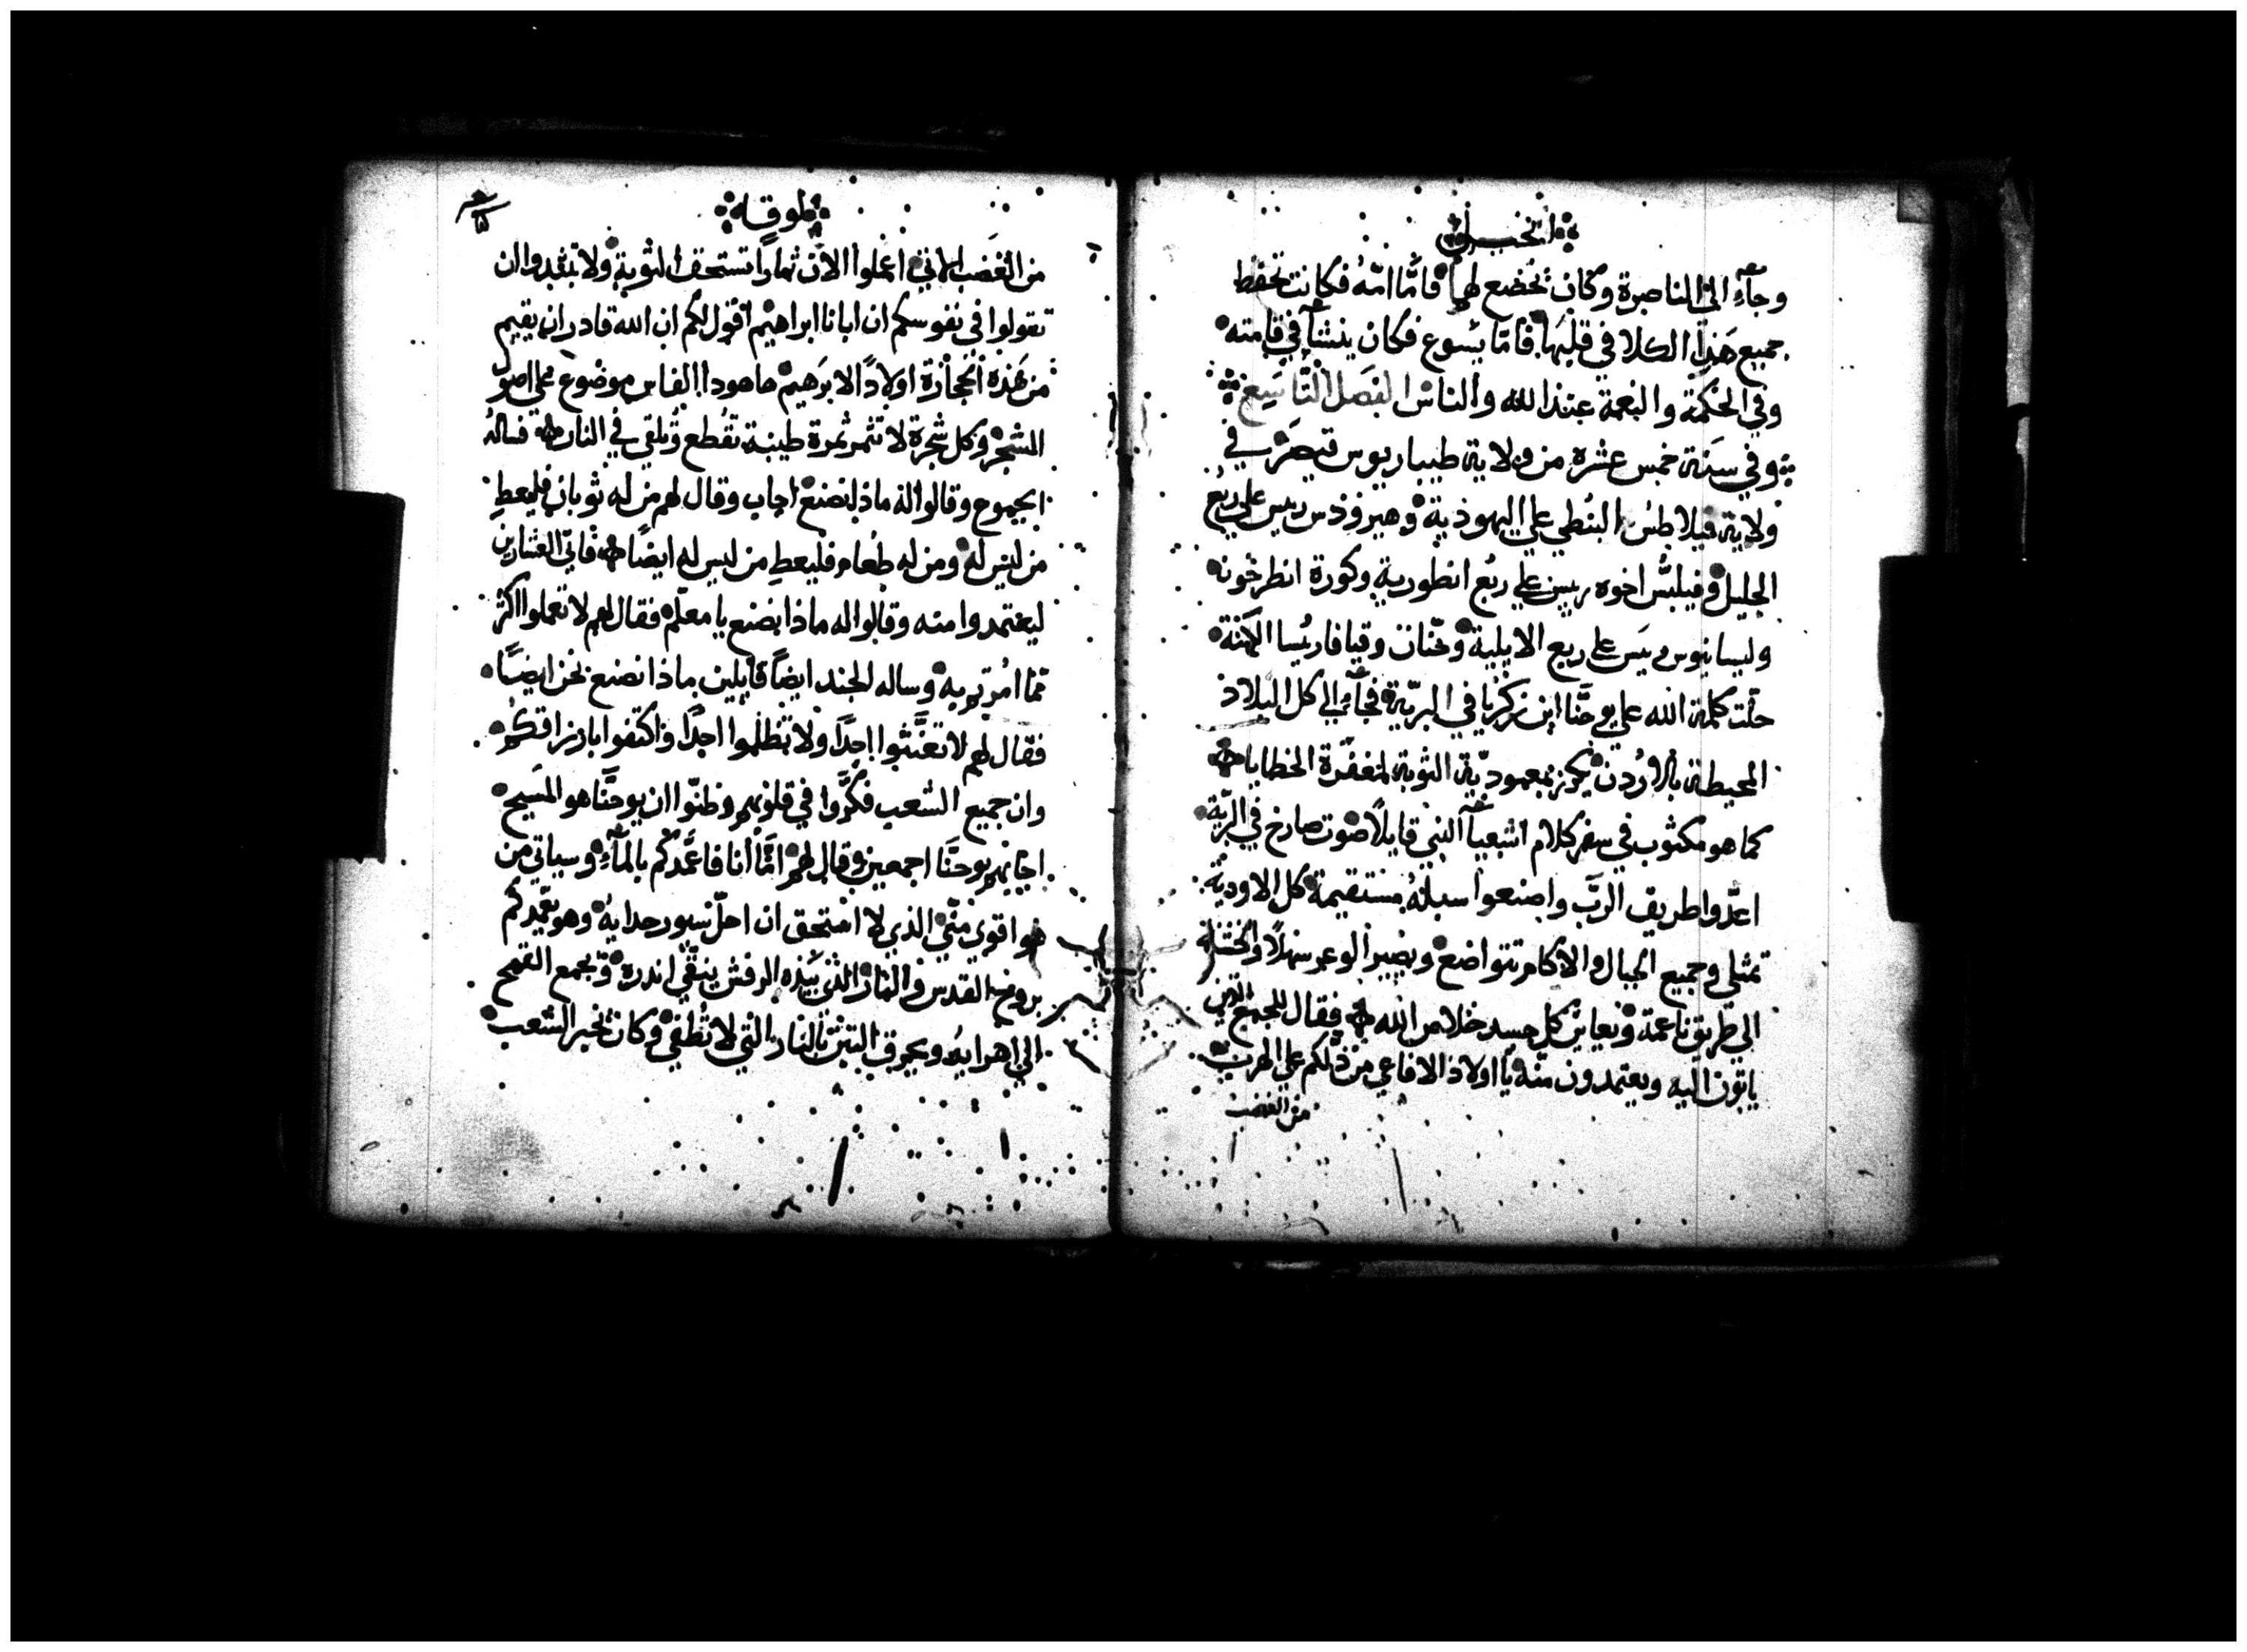 انجيل
وجاء الى الناصرة وكان يخضع لهما فامّا امّه فكانت تحفظ
جميع هذا الكلا في قلبها فامّا يسوع فكان ينشأ في قامته
وفي الحكمة والنعمة عند الله والناس الفصل التاسع
وفي سنة خمس عشره من ولاية طيباريوس قيصر في
ولاية فيلاطس البنطي على اليهودية وهيرودس رييس على ربع
الجليل وفيلبس اخوه رييس على ربع انطورية وكورة انطرخونه
وليسانيوس رييس على ربع الايلية وحنان وقيافا رئيسا الكهنة
حلّت كلمة الله على يوحنّا ابن زكريا في البرية فجاء الى كل البلاد
المحيطة بالاردن يكرز بمعمودية التوبة لمغفرة الخطايا
كما هو مكتوب في سفر كلام اشعيا النبي قايلًا صوت صارخ في البرّية
اعدّوا طريق الربّ واصنعوا سبله مستقيمة كل الاودية
تمتلي وجميع الجبال والاكام تتواضع ويصير الوعر سهلًا والخشنة
الى طريق ناعمة ويعاين كل جسد خلاص الله فقال للجمع الذين
ياتون اليه ويعتمدون منه يا اولاد الافاعي من دلكم على الهرب
من الغضب
لوقا
من الغضب الاتي اعملوا الان ثمارا تستحق التوبة ولا تبتدوا ان
تقولوا في نفوسكم ان ابانا ابراهيم اقول لكم ان الله قادر ان يقيم
من هذه الحجارة اولادًا لابرهيم هاهوذا الفاس موضوع على اصول
الشجر وكل شجرة لا تثمر ثمرة طيبة تقطع وتلقى في النار فساله
الجموع وقالوا له ماذا نصنع اجاب وقال لهم من له ثوبان فليعطِ
من ليس له ومن له طعام فليعطِ من ليس له ايضًا فاتى العشارين
ليعتمدوا منه وقالوا له ماذا نصنع يا معلم فقال لهم لا تعملوا اكثر
ممّا امرتم به وساله الجند ايضًا قايلين ماذا نصنع نحن ايضًا
فقال لهم لا تعنّتوا احدًا ولا تظلموا احدًا واكتفوا بارزاقكم
وان جميع الشعب فكّروا في قلوبهم وظنّوا ان يوحنّا هو المسيح
اجابهم يوحنّا اجمعين وقال لهم امّا انا فاعمّدكم بالماء وسياتي من
هو اقوى منّي الذي لا استحق ان احلّ سيور حدايه وهو يعمّدكم
بروح القدس والنار الذي بيده الرفش ينقّي اندره ويجمع القمح
الى اهرايه ويحرق التبن بالنار التي لا تطفى وكان يخبر الشعب